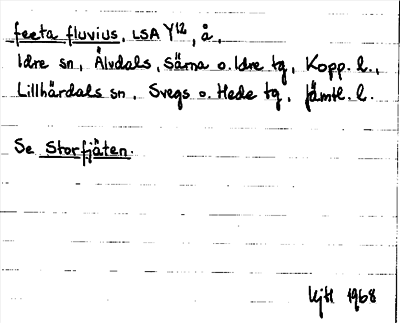 feeta fluvius, LSA Y12, å,
Idre sn, Älvdals, Särna o. Idre tg, Kopp. l.,
Lillhärdals sn, Svegs o. Hede tg, Jämtl. l.
Se Storfjäten.
1968